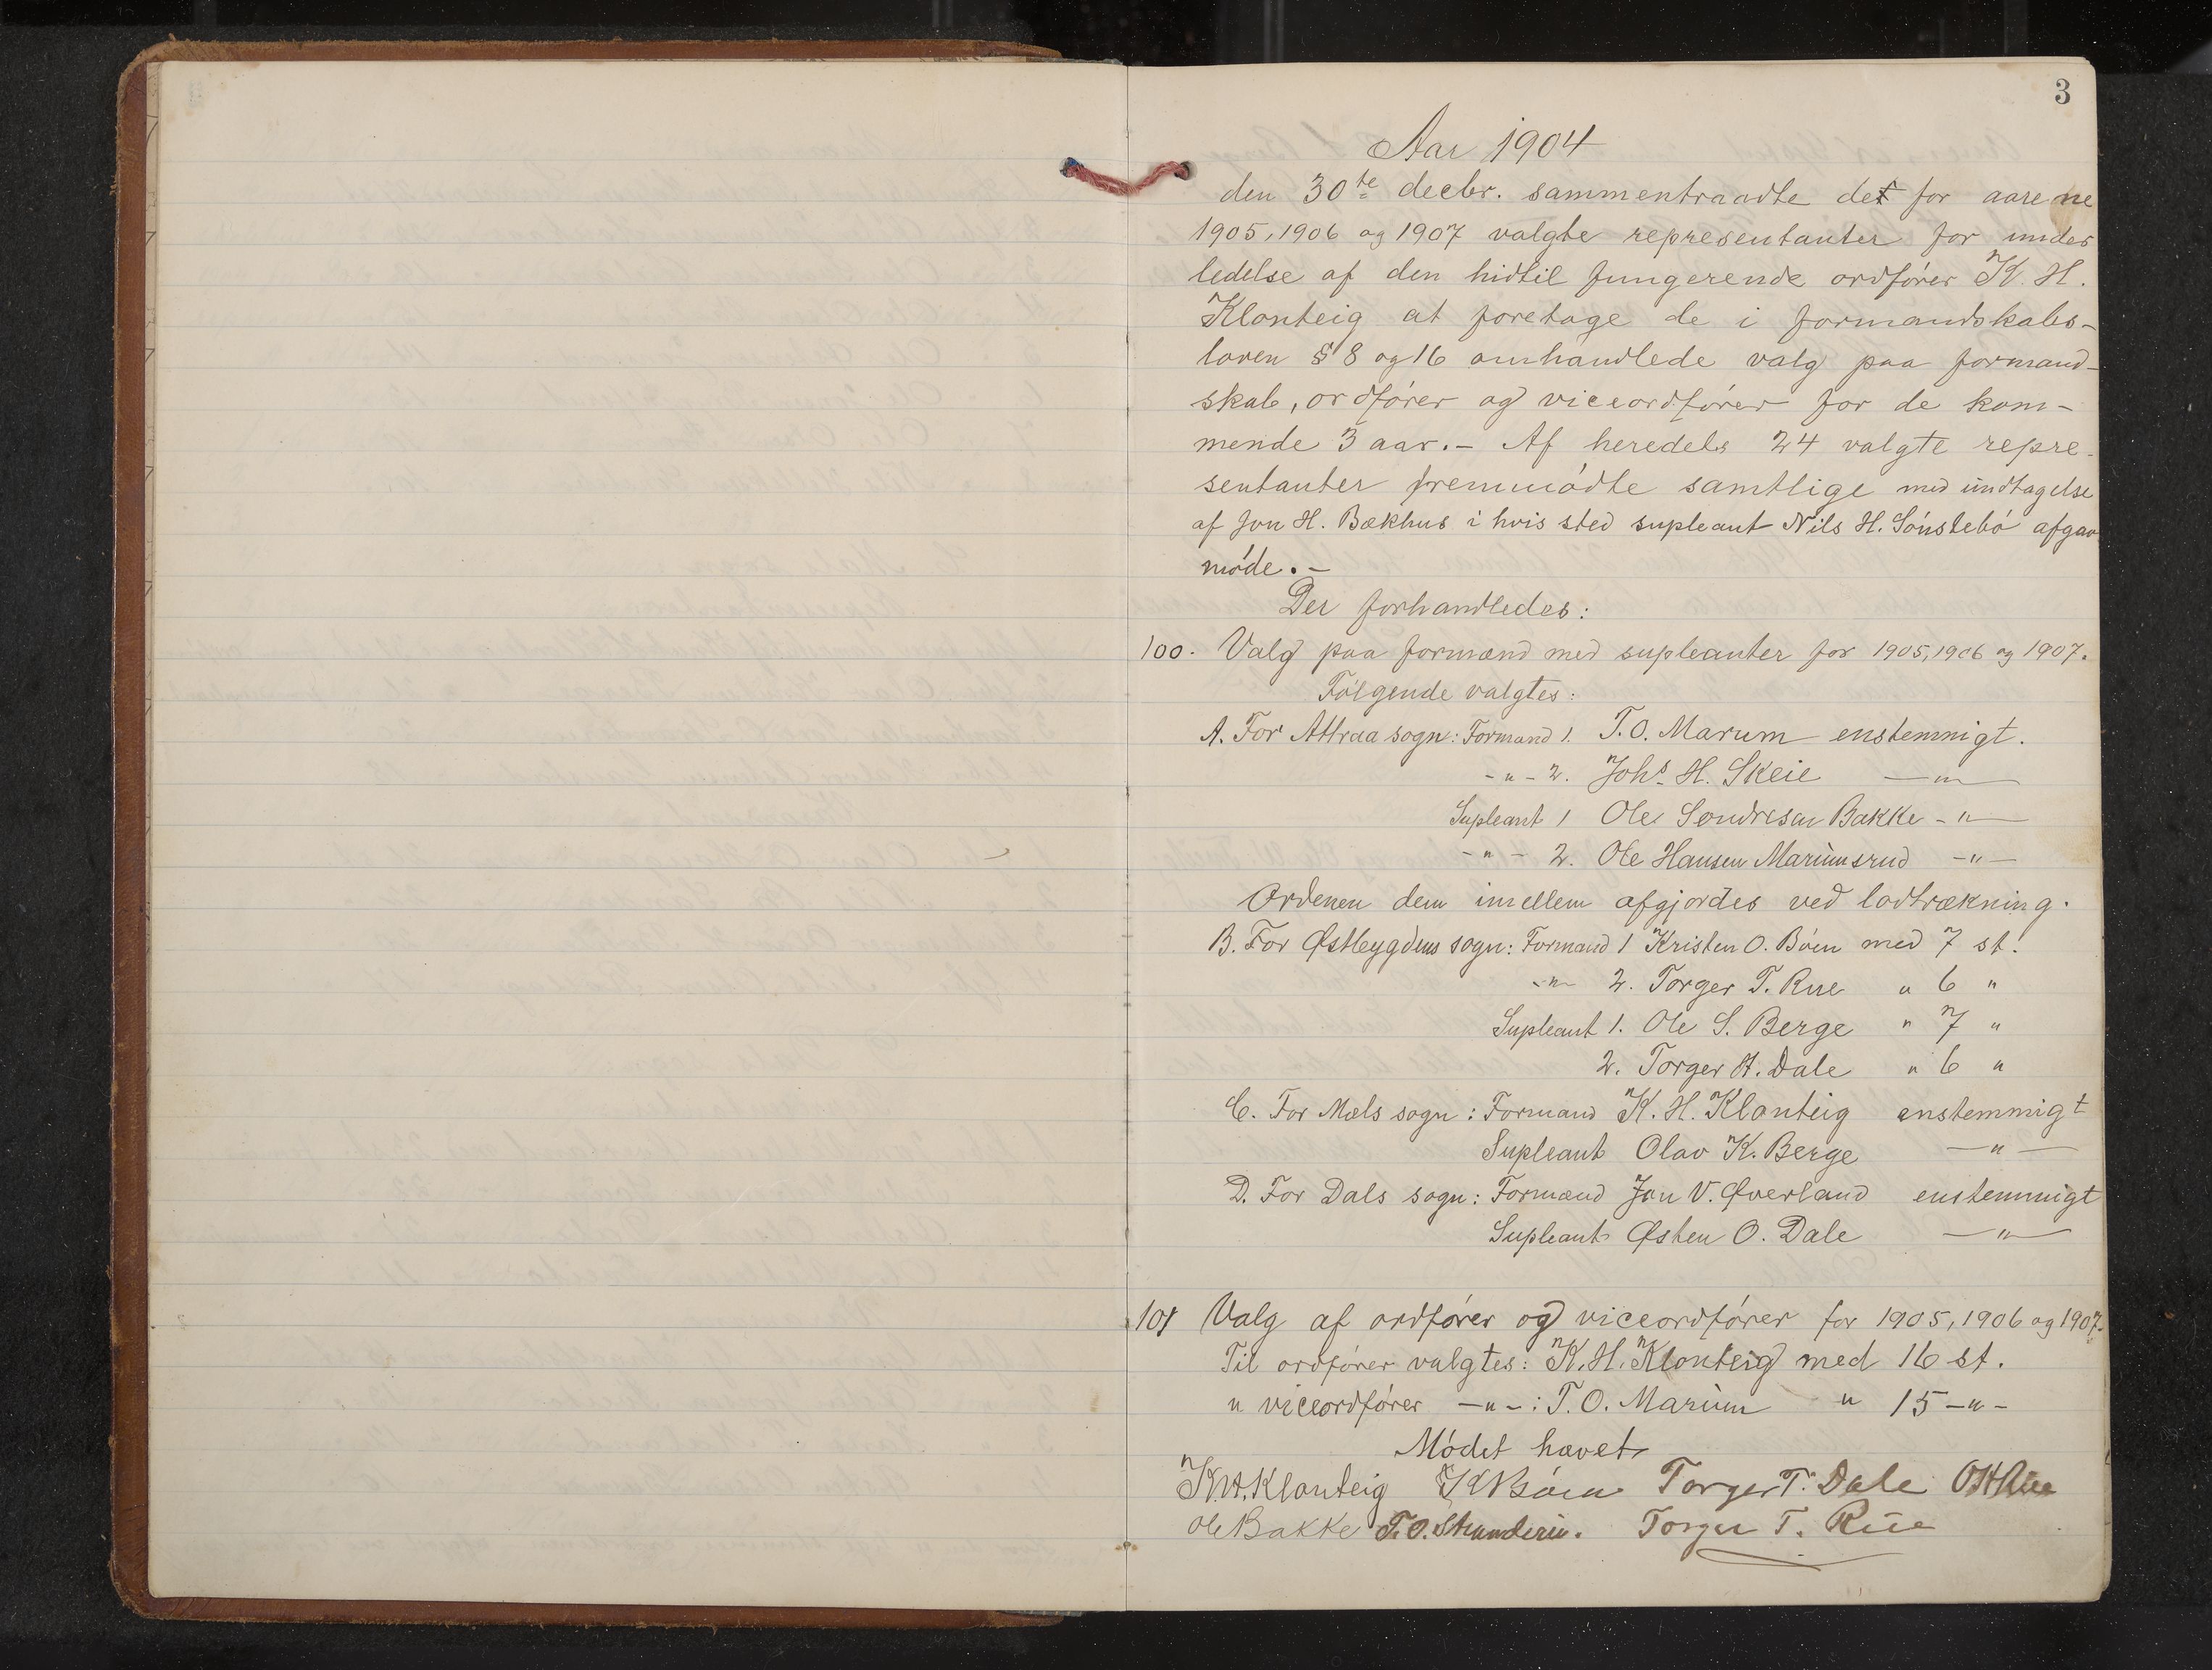 3
Aar 1904
den 30te decbr. sammentraadte det for aarene
1905, 1906 og 1907 valgte representanter for under
ledelse af den hidtil fungerende ordfører K. H.
Klonteig at foretage de i formandskabs-
loven § 8 og 16 omhandlede valg paa formand-
skab, ordfører og viceordfører for de kom-
mende 3 aar. - Af heredets 24 valgte repre-
sentanter fremmødte samtlige med undtagelse
af Jon H. Bækhus i hvis sted supleant Nils H. Sønstebø afgav
møde. -
Der forhandledes:
100. Valg paa formænd med supleanter for 1905, 1906 og 1907.
Følgende valgtes:
A. For Attraa sogn: Formand 1. T. O. Marum enstemmigt.
- " - 2. Johs. H. Skeie - " -
Supleant 1 Ole Sondresen Bakke - " -
- " - 2. Ole Hansen Marumsrud - " -
Ordenen dem imellem afgjordes ved lodtrækning.
B. For Østbygdens sogn: Formand 1 Kristen O. Bøen med 7 st.
- " - 2. Torger T. Rue " 6 "
Supleant 1. Ole S. Berge " 7 "
2. Torger H. Dale " 6 "
C. For Mæls sogn: Formand K. H. Klonteig enstemmigt
Supleant Olav K. Berge - " -
D. For Dals sogn: Formand Jon V. Øverland enstemmigt
Supleant Østen O. Dale - " -
101 Valg af ordfører og viceordfører for 1905, 1906 og 1907.
Til ordfører valgtes: K. H. Klonteig med 16 st.
" viceordfører - " - : T. O. Marum " 15 - " -
Mødet hævet
K. H. Klonteig K Bøen Torger T. Dale O H Rue
Ole Bakke T. O. Torger T. Rue